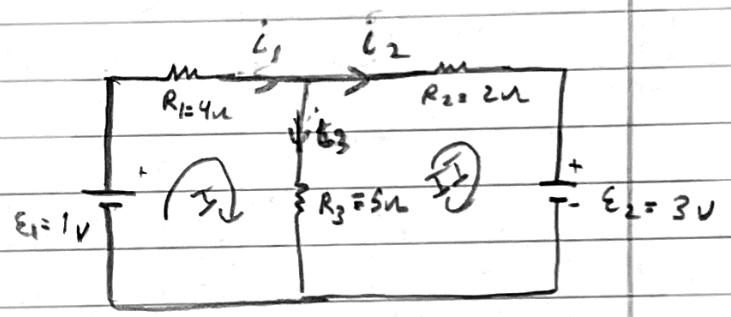 i₁ i₂
R₁=4Ω R₂=2Ω
i₃
+ +
I R₃=5Ω II
ε₁=1V - ε₂=3V